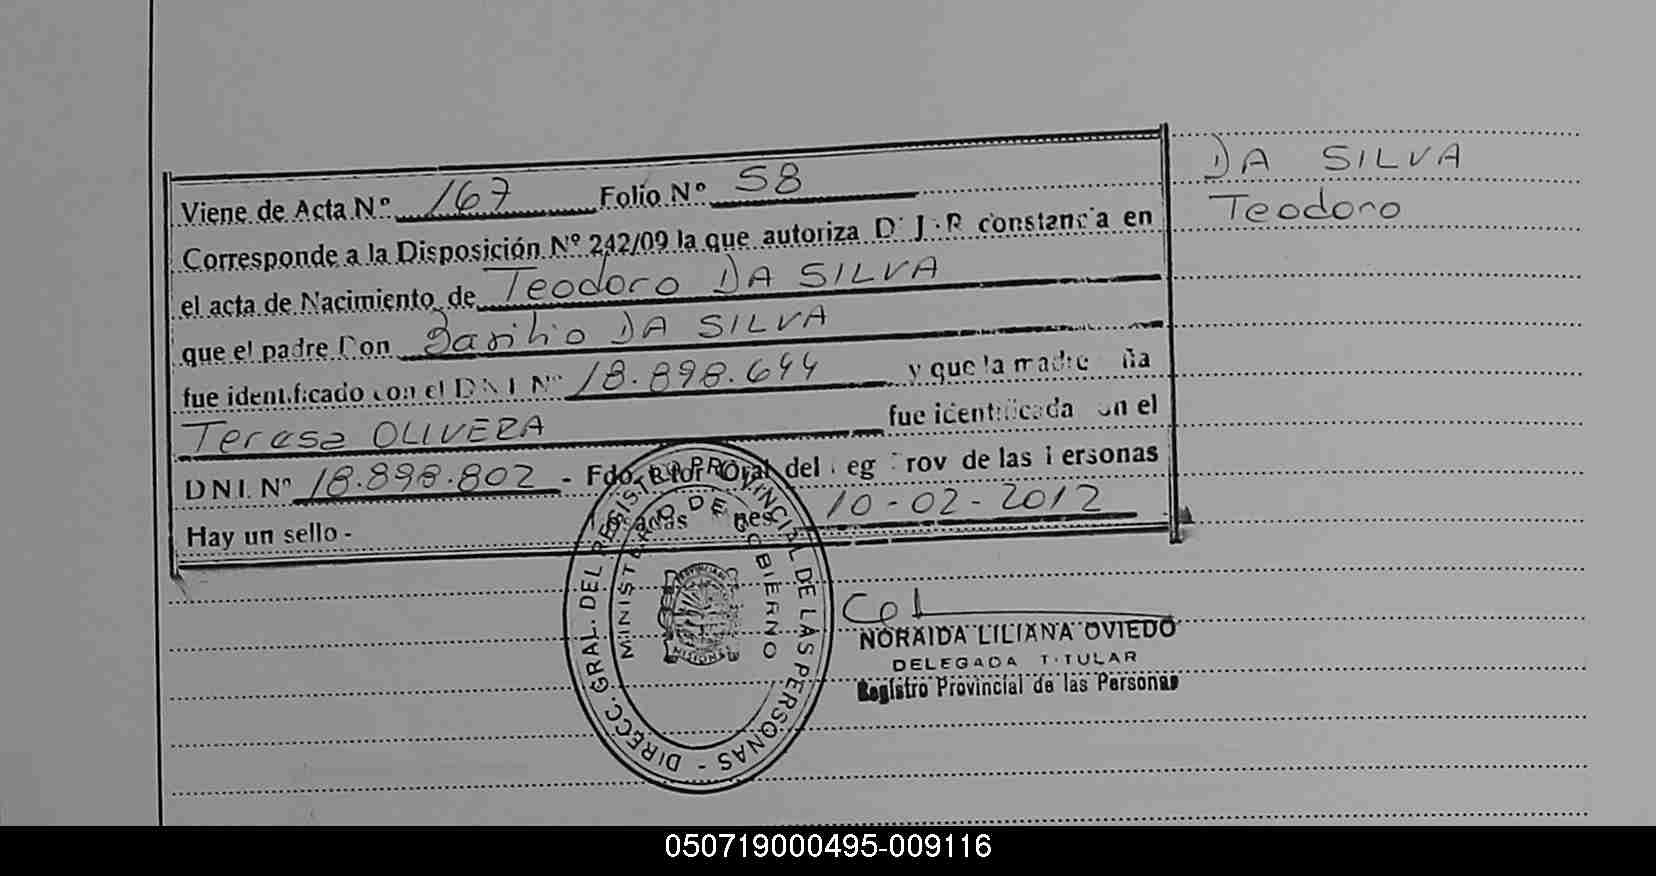 Viene de Acta Nº 167 Folio Nº 58
Corresponde a la Disposición Nº 242/09 la que autoriza D J R constancia en
el acta de Nacimiento de Teodoro DA SILVA
que el padre Don Basilio DA SILVA
fue identificado con el DNI Nº 18.898.644 y que la madre ña
Teresa OLIVERA fue identificada on el
DNI. Nº 18.898.802 - Fdo. por del eg rov de las ersonas
Hay un sello - Posadas nes 10-02-2012
DA SILVA
Teodoro
DIRECC. GRAL. DEL REGISTRO PROVINCIAL DE LAS PERSONAS -
MINISTERIO DE GOBIERNO
MISIONES
NORAIDA LILIANA OVIEDO
DELEGADA TITULAR
Registro Provincial de las Personas
050719000495-009116